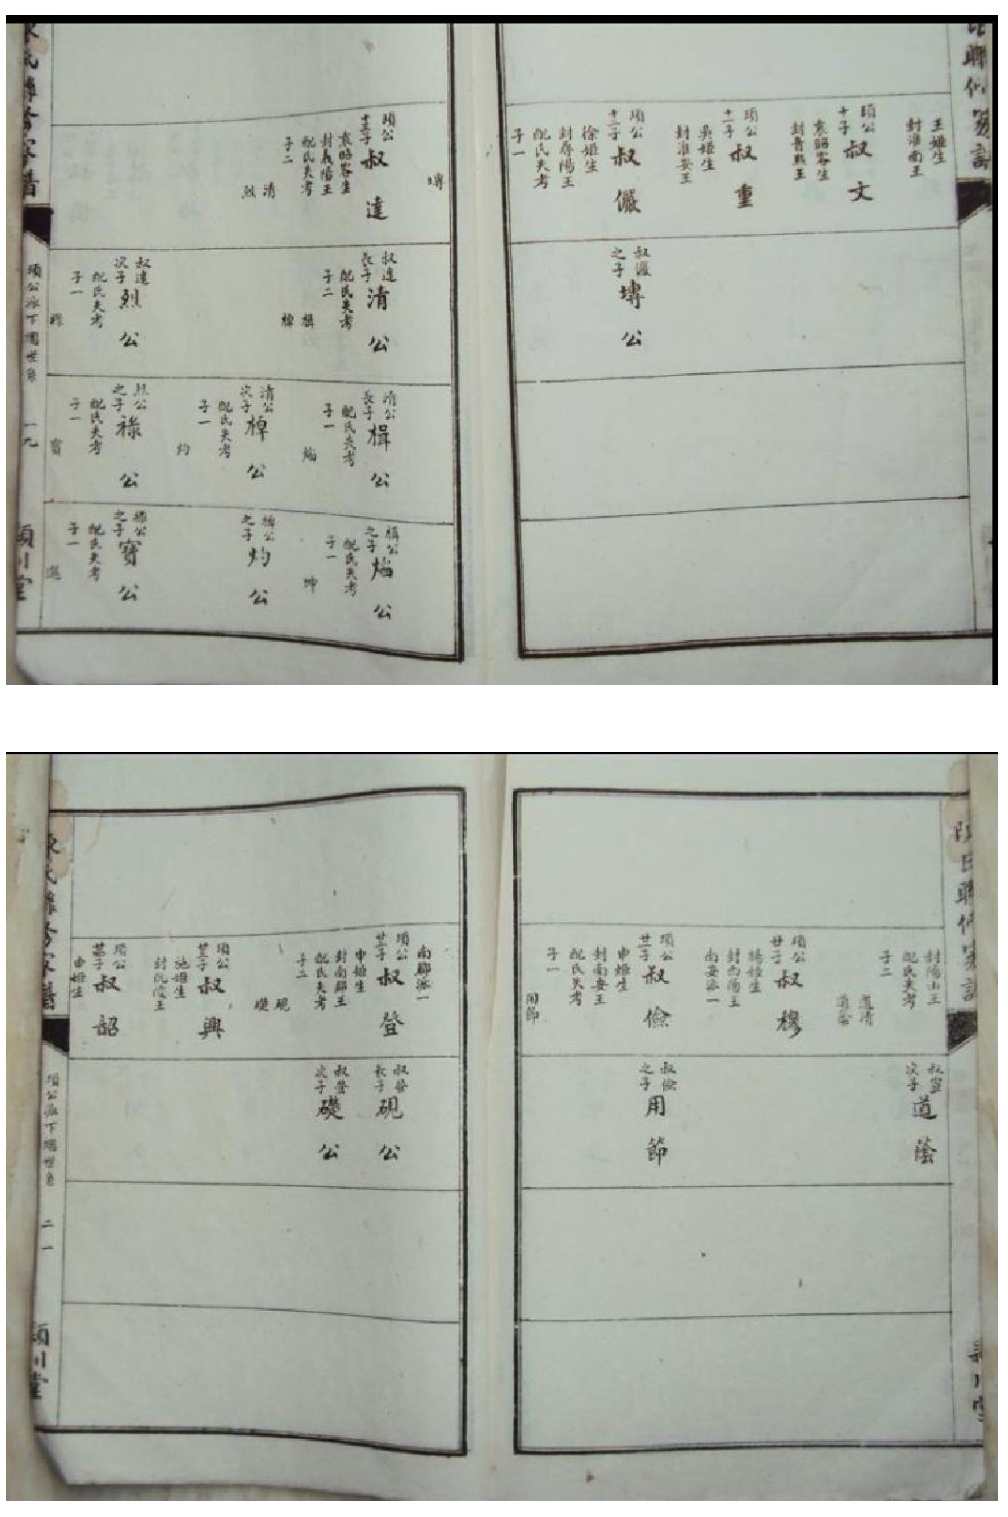 王姬生
封淮南王
項公
十子
叔文
袁昭容生
封晋熙王
項公
十一子
叔重
吳姬生
封淮安王
項公
十二子
叔儼
徐姬生
封尋陽王
配氏失考
子一
塼
叔儼
之子
塼公
項公
十三子
叔達
袁昭容生
封義陽王
配氏失考
子二
清
烈
叔達
長子
清公
配氏失考
子二
楫
棹
叔達
次子
烈公
配氏失考
子一
祿
清公
長子
楫公
配氏失考
子一
清公
次子
棹公
配氏失考
子一
灼
烈公
之子
祿公
配氏失考
子一
寶
楫公
之子
公
配氏失考
子一
坤
棹公
之子
灼公
祿公
之子
寶公
配氏失考
子一
項公派下關世系
一九
潁川堂
陳氏聯修宗譜
封陽山王
配氏失考
子二
道清
道蔭
項公
廿子
叔穆
楊姬生
封西陽王
南安派一
項公
廿一子
叔儉
申姬生
封南安王
配氏失考
子一
用節
叔寧
次子
道蔭
叔儉
之子
用節
南郡派一
項公
廿二子
叔登
申姬生
封南郡王
配氏失考
子二
硯
礎
項公
廿三子
叔興
沈姬生
封沅陵王
項公
廿四子
叔韶
申姬生
叔登
長子
硯公
叔登
次子
礎公
陳氏聯修宗譜
項公派下關世系
二一
潁川堂